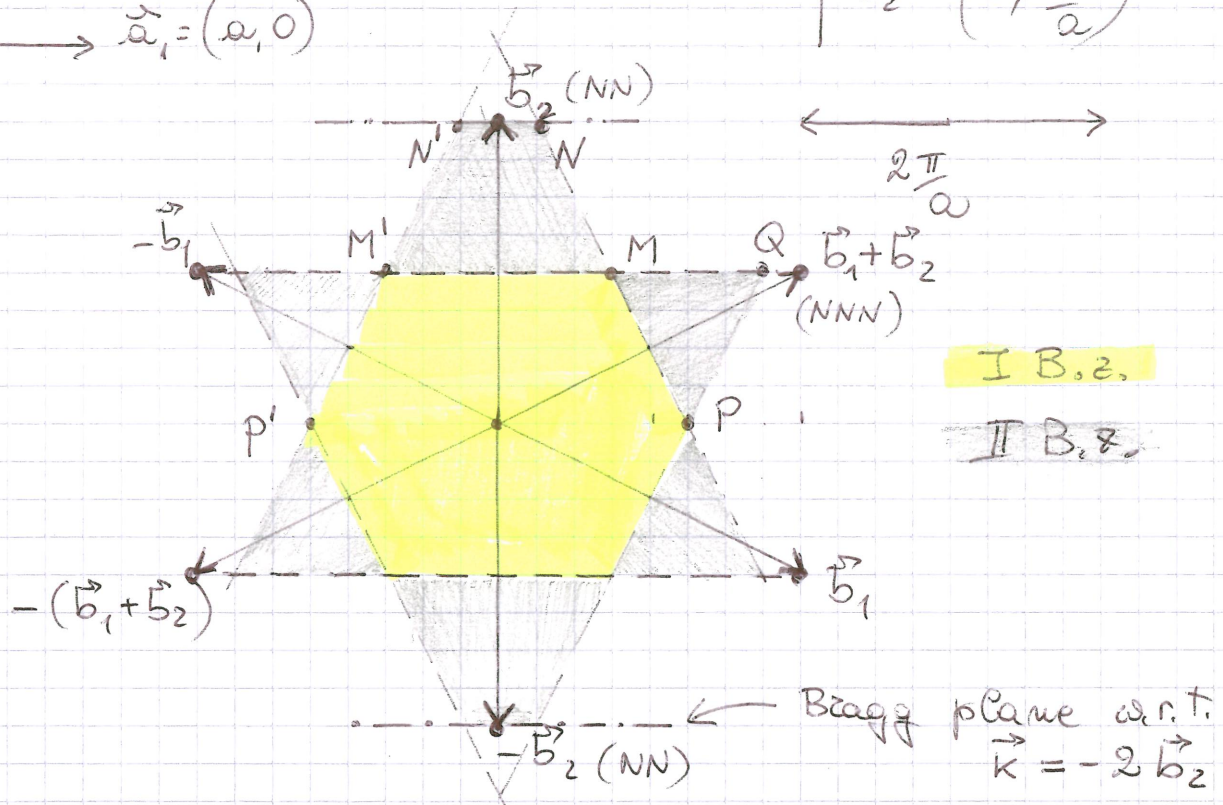 a⃗₁=(a,0)
2
a
b⃗₂ (NN)
N'
N
2π/a
-b⃗₁
M'
M
Q
b⃗₁+b⃗₂
(NNN)
I B.z.
P'
P
II B.z.
-(b⃗₁+b⃗₂)
b⃗₁
-b⃗₂ (NN)
Bragg plane w.r.t.
k⃗ = -2b⃗₂